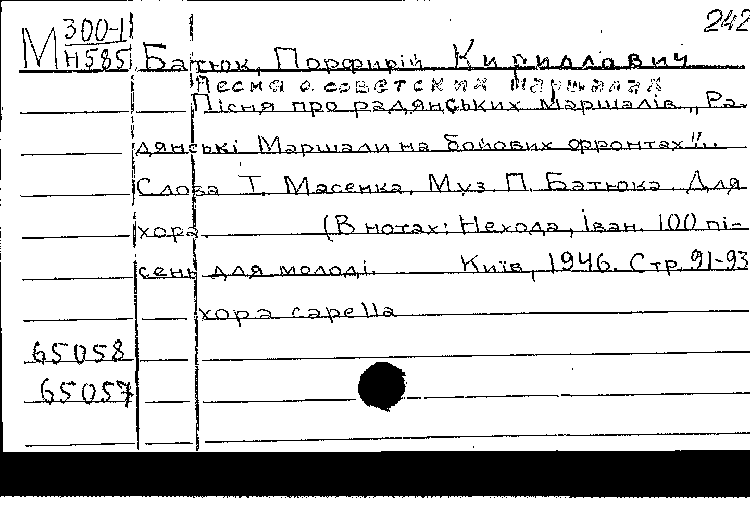 242
М 300-1
Н585
Батюк, Порфирій Кириллович
Песня о советских маршалах
Пісня про радянських маршалів „Ра-
дянські Маршали на бойових фронтах"..
Слова Т. Масенка. Муз. П. Батюка. Для
хора. (В нотах: Нехода, Іван. 100 пі-
сень для молоді. Київ, 1946. Стр. 91-93
хора capella
65058
65057